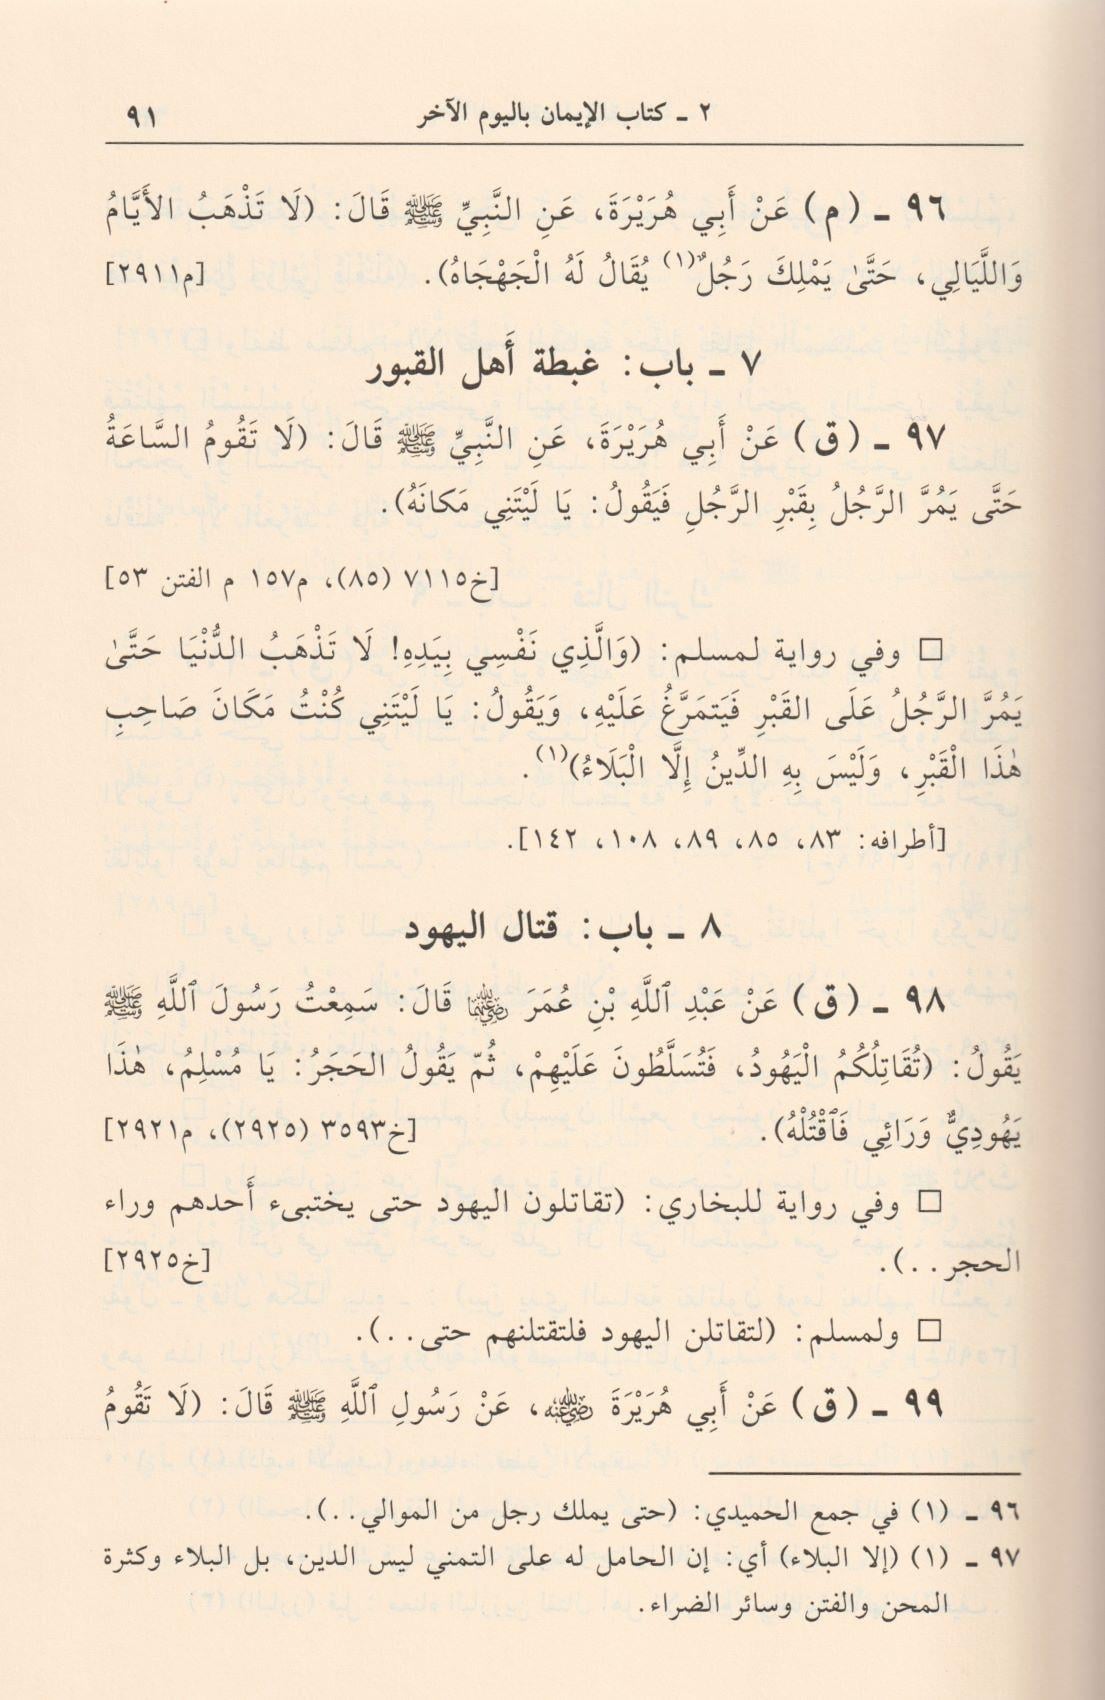 ٢ ـ كتاب الإيمان باليوم الآخر ٩١
٩٦ ـ (م) عَنْ أَبِي هُرَيْرَةَ، عَنِ النَّبِيِّ ﷺ قَالَ: (لَا تَذْهَبُ الأَيَّامُ
وَاللَّيَالِي، حَتَّىٰ يَمْلِكَ رَجُلٌ(١) يُقَالُ لَهُ الْجَهْجَاهُ). [م٢٩١١]
٧ ـ باب: غبطة أَهل القبور
٩٧ ـ (ق) عَنْ أَبِي هُرَيْرَةَ، عَنِ النَّبِيِّ ﷺ قَالَ: (لَا تَقُومُ السَّاعَةُ
حَتَّى يَمُرَّ الرَّجُلُ بِقَبْرِ الرَّجُلِ فَيَقُولُ: يَا لَيْتَنِي مَكانَهُ).
[خ٧١١٥ (٨٥)، م١٥٧ م الفتن ٥٣]
□ وفي رواية لمسلم: (وَالَّذِي نَفْسِي بِيَدِهِ! لَا تَذْهَبُ الدُّنْيَا حَتَّىٰ
يَمُرَّ الرَّجُلُ عَلَى القَبْرِ فَيَتَمَرَّغُ عَلَيْهِ، وَيَقُولُ: يَا لَيْتَنِي كُنْتُ مَكَانَ صَاحِبِ
هٰذَا الْقَبْرِ، وَلَيْسَ بِهِ الدِّينُ إِلَّا الْبَلَاءُ)(١).
[أطرافه: ٨٣، ٨٥، ٨٩، ١٠٨، ١٤٢].
٨ ـ باب: قتال اليهود
٩٨ ـ (ق) عَنْ عَبْدِ ٱللَّهِ بْنِ عُمَرَ رضي الله عنهما قَالَ: سَمِعْتُ رَسُولَ ٱللَّهِ ﷺ
يَقُولُ: (تُقَاتِلُكُمُ الْيَهُودُ، فَتُسَلَّطُونَ عَلَيْهِمْ، ثُمَّ يَقُولُ الحَجَرُ: يَا مُسْلِمُ، هٰذَا
يَهُودِيٌّ وَرَائِي فَٱقْتُلْهُ). [خ٣٥٩٣ (٢٩٢٥)، م٢٩٢١]
□ وفي رواية للبخاري: (تقاتلون اليهود حتى يختبىء أَحدهم وراء
الحجر..). [خ٢٩٢٥]
□ ولمسلم: (لتقاتلن اليهود فلتقتلنهم حتى..).
٩٩ ـ (ق) عَنْ أَبِي هُرَيْرَةَ رضي الله عنه، عَنْ رَسُولِ ٱللَّهِ ﷺ قَالَ: (لَا تَقُومُ
٩٦ ـ (١) في جمع الحميدي: (حتى يملك رجل من الموالي..).
٩٧ ـ (١) (إلا البلاء) أي: إن الحامل له على التمني ليس الدين، بل البلاء وكثرة
المحن والفتن وسائر الضراء.